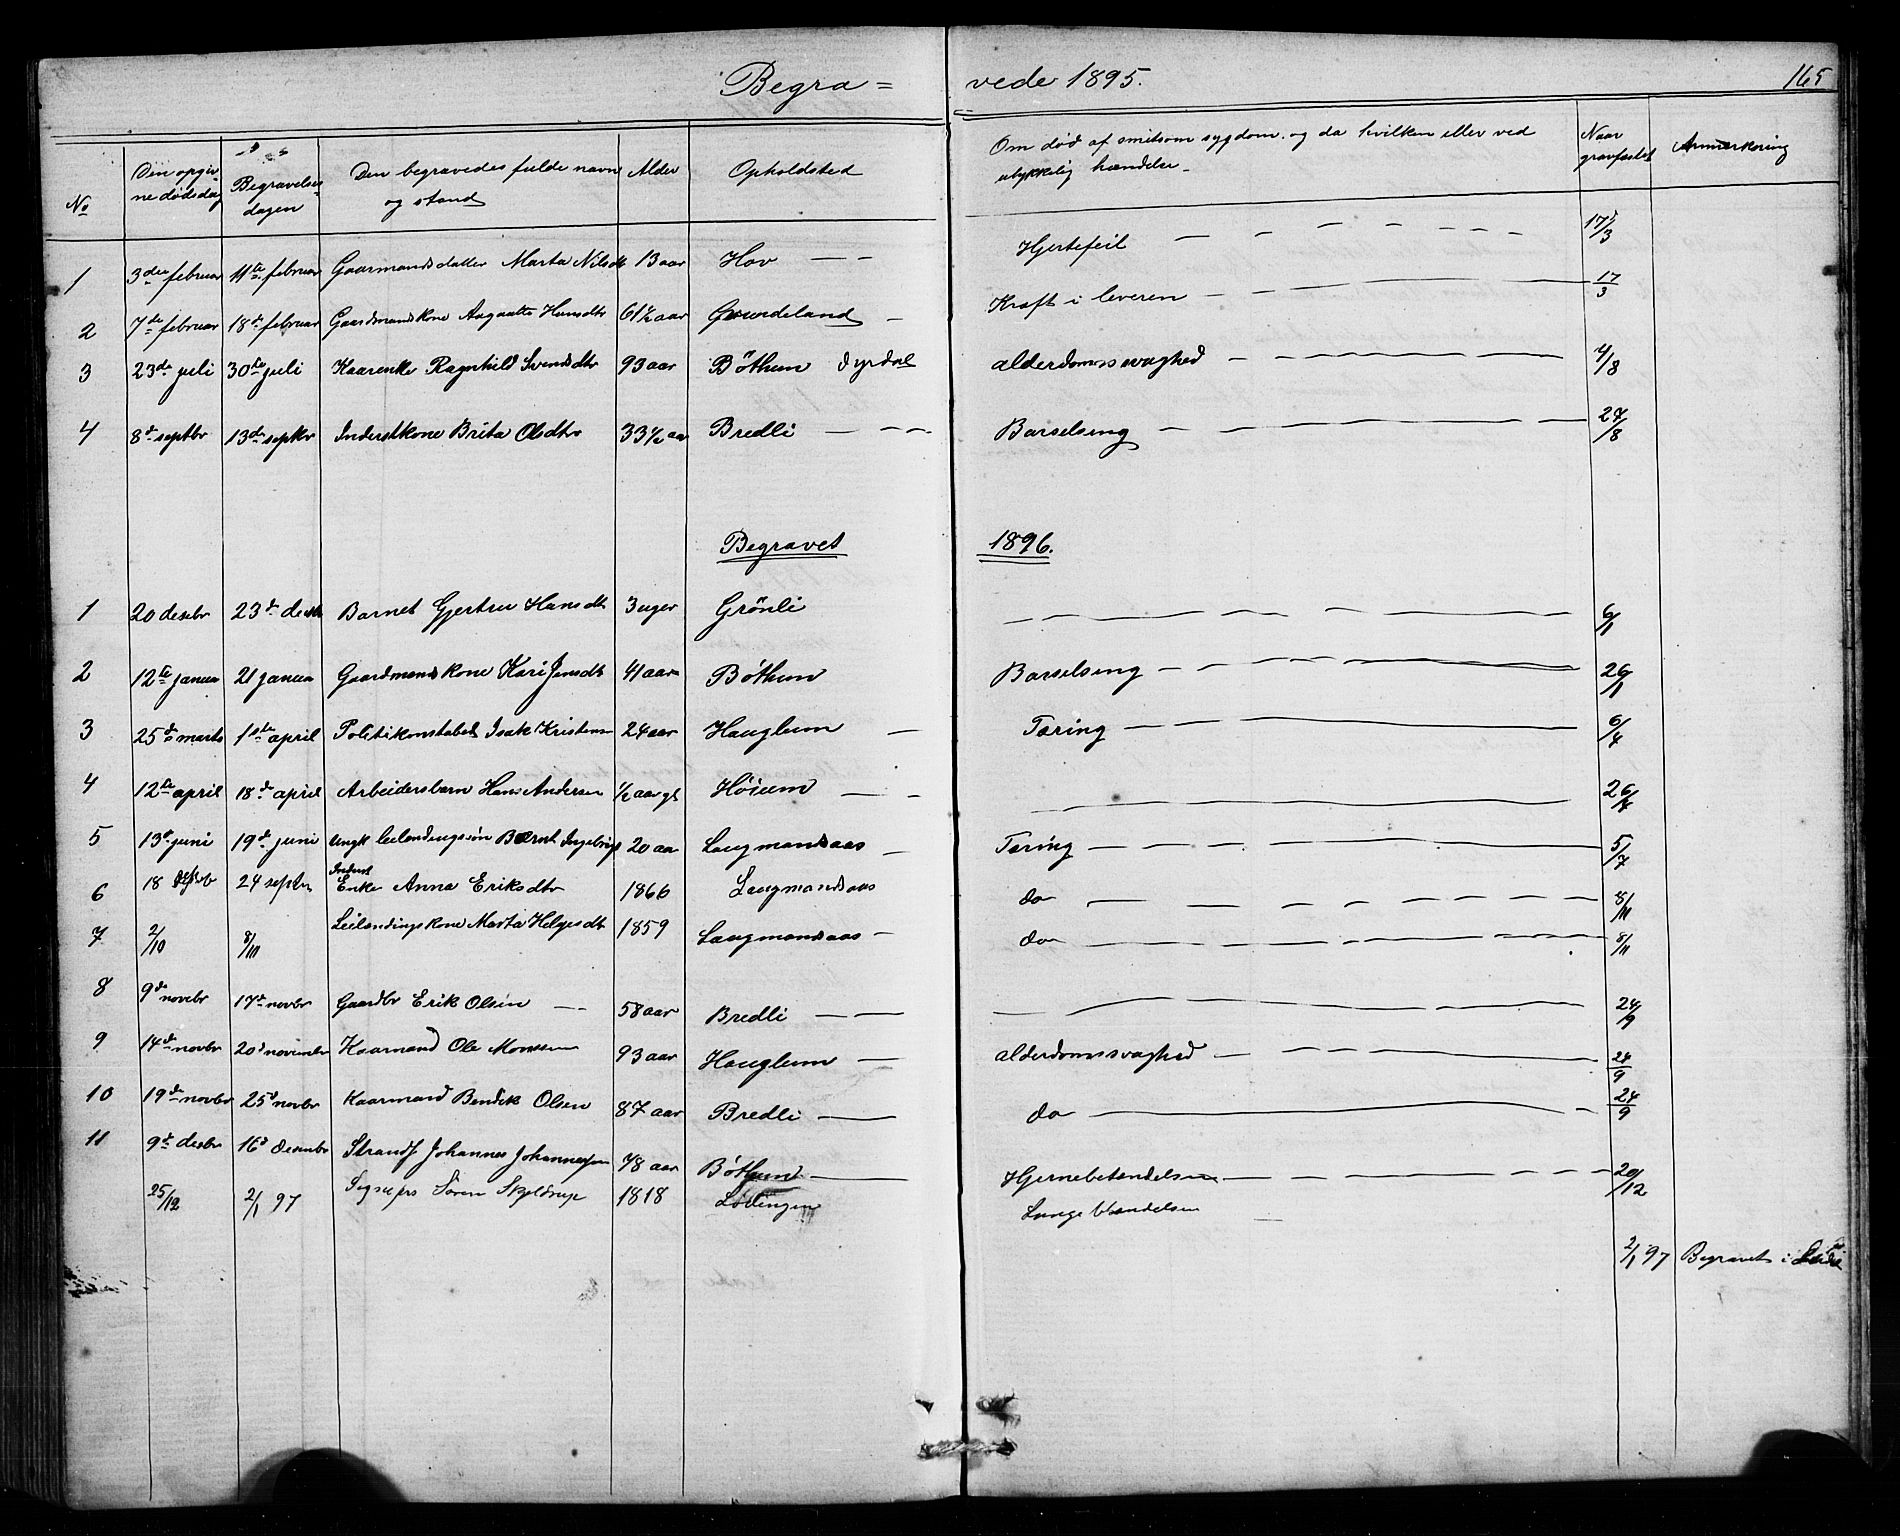 Begra = vede 1895. 165
No Den opgivne dødsdag Begravelsesdagen Den begravedes fulde navn og stand Alder Opholdsted Om død af smitsom sygdom, og da hvilken eller ved ulykkelig hændelse Naar gravfæstet Anmærkning
1 3die februar 11te februar Gaarmandsdatter Marta Nilsdt 13 aar Hov — — Hjertefeil — 17/3
2 7de februar 18de februar Gaardmandskone Aagaatte Hansdtr 61½ aar — Kræft i leveren — 17/3
3 23de juli 30te juli Kaarenke Ragnhild Svendsdtr 93 aar Bøthun Dyrdal alderdomssvaghed — 4/8
4 8de septbr 13de septbr Inderstkone Brita Olsdtr 33½ aar Bredli — — — Barselseng — 27/8
Begravet 1896.
1 20 desebr 23de desebr Barnet Gjertru Hansdtr 3 uger Grönli — 6/1
2 12te januar 21 januar Gaardmandskone Kari Jensdtr 41 aar Bøthun Barselseng — 26/1
3 25de marts 1ste april Politikonstabel Isak Kristensen 24 aar Hauglum — Tæring — 6/4
4 12te april 18de april Arbeidersbarn Hans Andersen ½ aar gl Høium — — — 26/4
5 13de juni 19de juni Ungk leilendingssön Bærnt 20 aar Laugmandsaas — Tæring — 5/7
6 18 septb 24 septbr Inderst Enke Anna Eriksdtr 1866 Laugmandsaas do — 8/11
7 2/10 8/11 Leilendingskone Marta Helgesdtr 1859 Laugmandsaas — do — 8/11
8 9de novebr 17de novbr Gaardbr Erik Olsen — 58 aar Bredli — — — 24/9
9 14de novbr 20d november Kaarmand Ole Monssen 93 aar Hauglum — alderdomssvaghed — 24/9
10 19de novbr 25d novbr Kaarmand Bendik Olsen 87 aar Bredli — do — 24/9
11 9de desbr 16d desember Strands. Johannes Johannessen 78 aar Bøthun — Hjernebetendelse — 20/12
25/12 2/1 97 Sören Skjeldrup 1818 Lödingen —
2/1 97 Begravet i